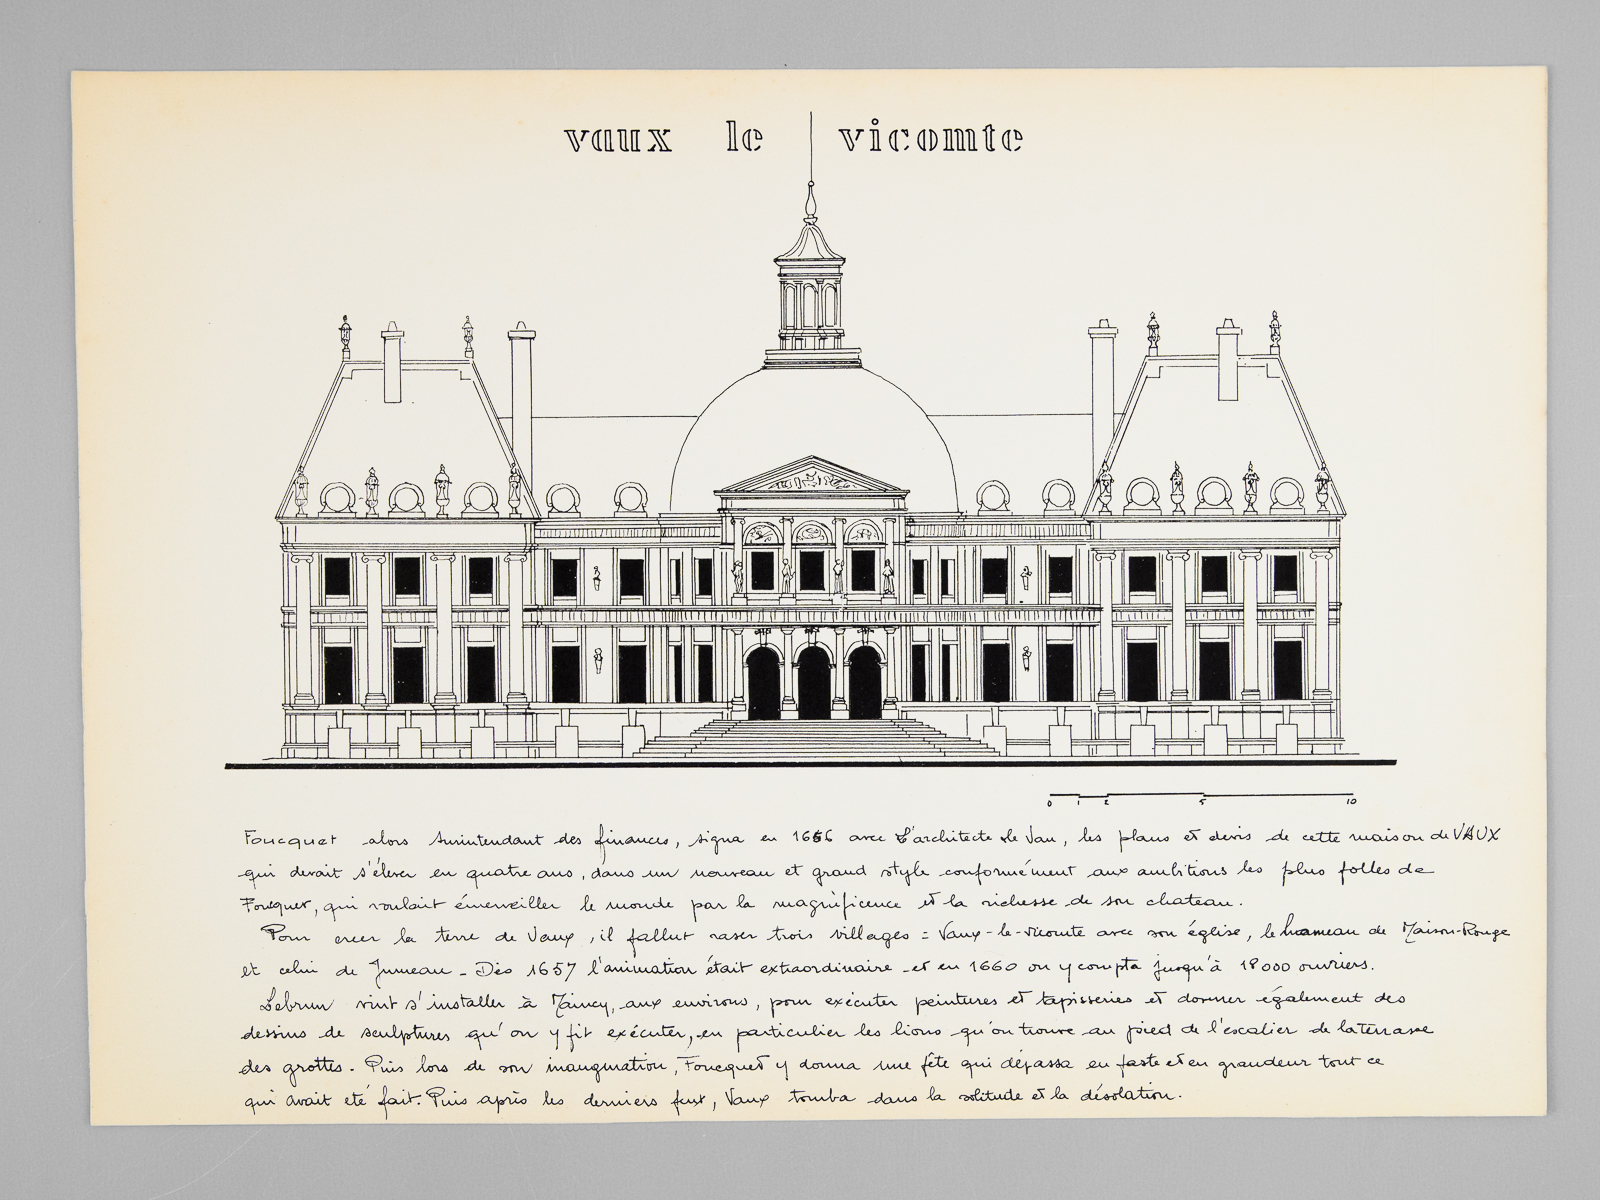 vaux le vicomte
0 1 2 5 10
Foucquet alors Surintendant des finances, signa en 1656 avec l'architecte le Vau, les plans et devis de cette maison de VAUX
qui devait s'élever en quatre ans, dans un nouveau et grand style conformément aux ambitions les plus folles de
Foucquet, qui voulait émerveiller le monde par la magnificence et la richesse de son chateau.
Pour creer la terre de Vaux, il fallut raser trois villages = Vaux-le-vicomte avec son église, le hameau de Maison-Rouge
et celui de Jumeau - Dès 1657 l'animation était extraordinaire et en 1660 on y compta jusqu'à 18000 ouvriers.
Lebrun vint s'installer à Maincy, aux environs, pour exécuter peintures et tapisseries et donner également des
dessins de sculptures qu'on y fit exécuter, en particulier les lions qu'on trouve au pied de l'escalier de la terrasse
des grottes. Puis lors de son inauguration, Foucquet y donna une fête qui dépassa en faste et en grandeur tout ce
qui avait eté fait. Puis après les derniers feux, Vaux tomba dans la solitude et la désolation.